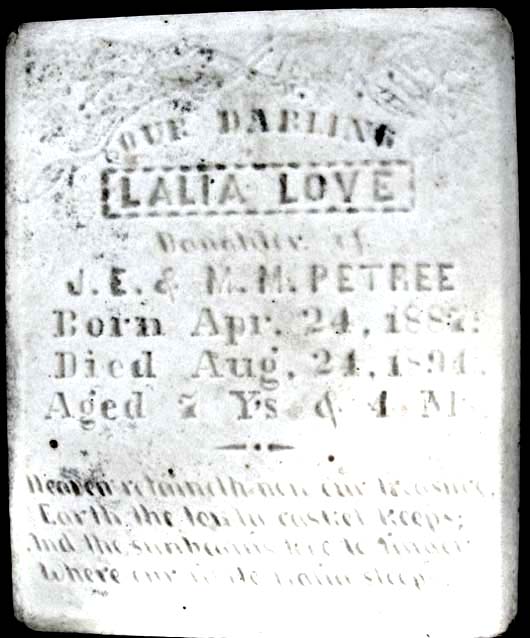 OUR DARLING
LALIA LOVE
Daughter of
J. E. & M. M. PETREE
Born Apr. 24, 1887.
Died Aug. 24, 1894.
Aged 7 Ys. & 4 Ms.
Heaven retaineth now our treasure,
Earth the lonely casket keeps;
And the sunbeams love to linger
Where our little Lalia sleeps.